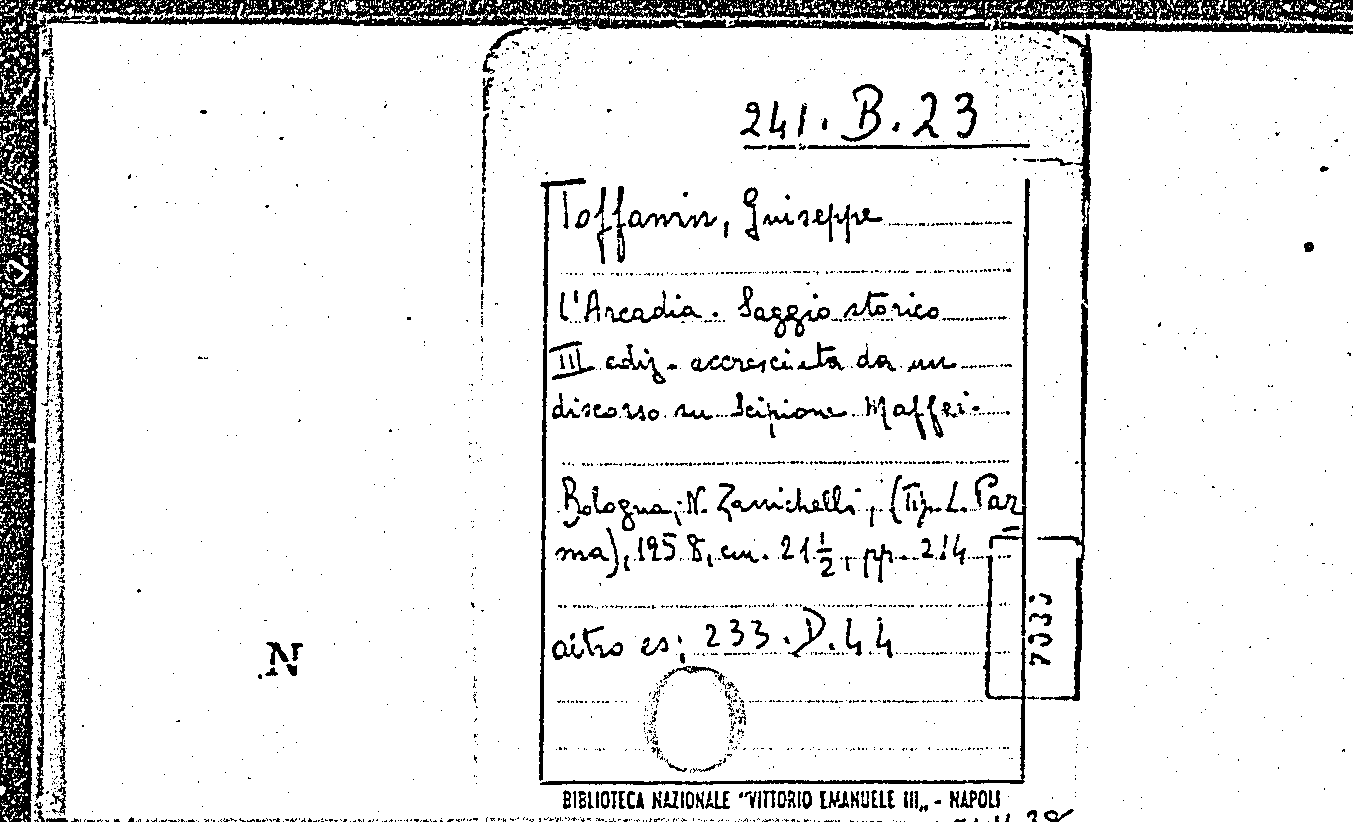 241. B. 23
Toffanin, Giuseppe
L'Arcadia. Saggio storico
III ediz. accresciuta da un
discorso su Scipione Maffei.
Bologna, N. Zanichelli, (Tip. L. Par
ma), 1958, cm. 21 1/2, pp. 214
altro es: 233. D. 44
N
BIBLIOTECA NAZIONALE "VITTORIO EMANUELE III„ - NAPOLI